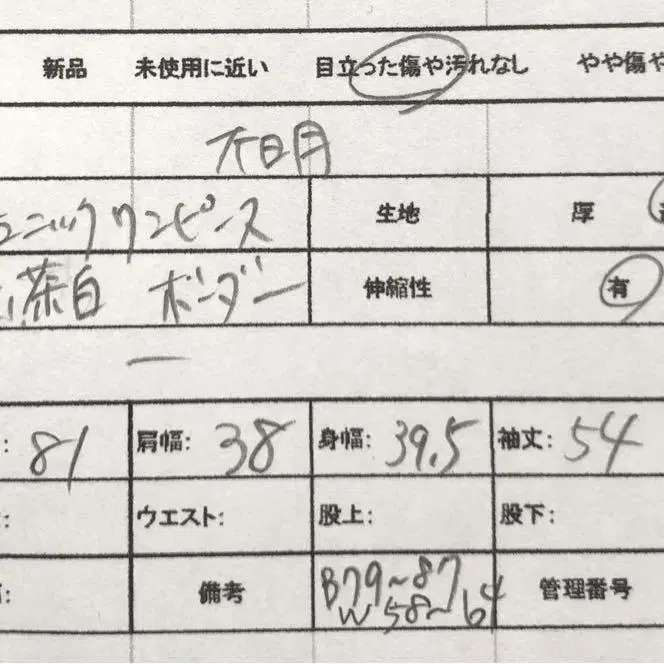 新品 未使用に近い 目立った傷や汚れなし やや傷や
ニックワンピース 生地 厚
茶白 ボーダー 伸縮性 有
ー
: 81 肩幅: 38 身幅: 39.5 袖丈: 54
: ウエスト: 股上: 股下:
: 備考 B79~87 管理番号
W58~64